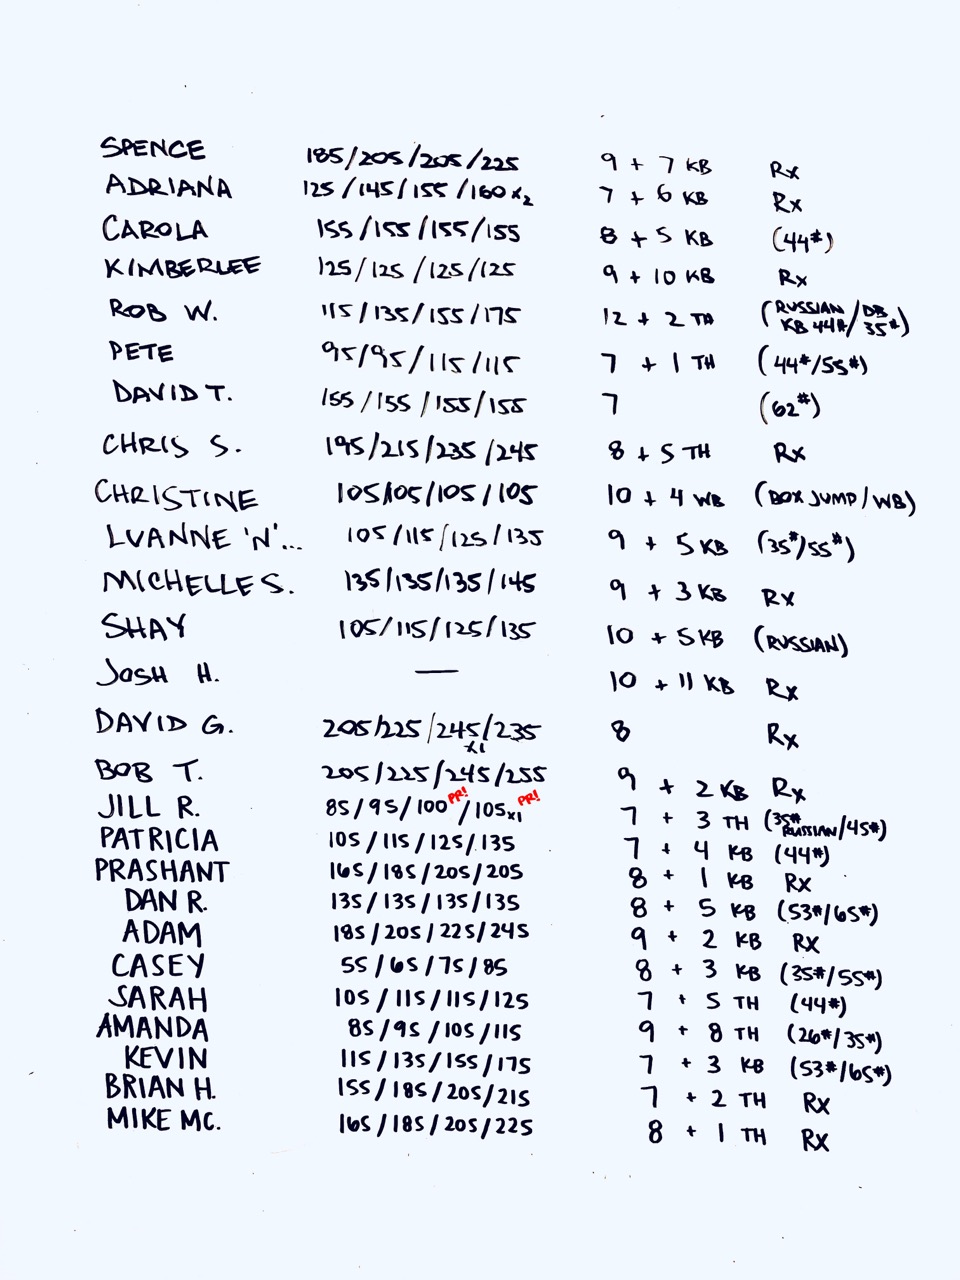 SPENCE 185/205/205/225 9 + 7 KB Rx
ADRIANA 125/145/155/160 x2 7 + 6 KB Rx
CAROLA 155/155/155/155 8 + 5 KB (44#)
KIMBERLEE 125/125/125/125 9 + 10 KB Rx
ROB W. 115/135/155/175 12 + 2 TH (RUSSIAN KB 44#/DB 35#)
PETE 95/95/115/115 7 + 1 TH (44#/55#)
DAVID T. 155/155/155/155 7 (62#)
CHRIS S. 195/215/235/245 8 + 5 TH Rx
CHRISTINE 105/105/105/105 10 + 4 WB (BOX JUMP/WB)
LVANNE 'N'... 105/115/125/135 9 + 5 KB (35#/55#)
MICHELLE S. 135/135/135/145 9 + 3 KB Rx
SHAY 105/115/125/135 10 + 5 KB (RUSSIAN)
JOSH H. — 10 + 11 KB Rx
DAVID G. 205/225/245 x1/235 8 Rx
BOB T. 205/225/245/255 9 + 2 KB Rx
JILL R. 85/95/100 PR!/105 x1 PR! 7 + 3 TH (35# RUSSIAN/45#)
PATRICIA 105/115/125/135 7 + 4 KB (44#)
PRASHANT 165/185/205/205 8 + 1 KB Rx
DAN R. 135/135/135/135 8 + 5 KB (53#/65#)
ADAM 185/205/225/245 9 + 2 KB RX
CASEY 55/65/75/85 8 + 3 KB (35#/55#)
SARAH 105/115/115/125 7 + 5 TH (44#)
AMANDA 85/95/105/115 9 + 8 TH (26#/35#)
KEVIN 115/135/155/175 7 + 3 KB (53#/65#)
BRIAN H. 155/185/205/215 7 + 2 TH RX
MIKE MC. 165/185/205/225 8 + 1 TH RX